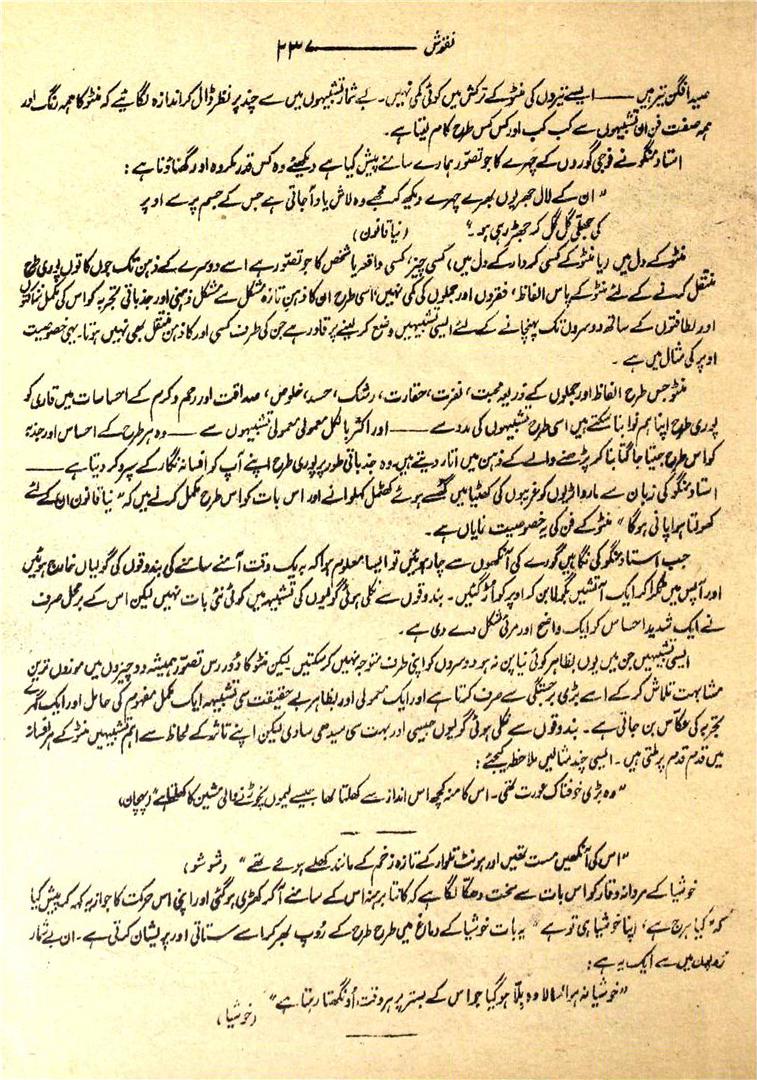 نقوش ——— ۲۳۷
صید افگن تیر ہیں ——— ایسے تیروں کی منٹو کے ترکش میں کوئی کمی نہیں۔ بے شمار تشبیہوں میں سے چند پر نظر ڈال کر اندازہ لگائیے کہ منٹو کا ہمہ رنگ اور
ہمہ صفت فن ان تشبیہوں سے کب کب اور کس کس طرح کام لیتا ہے۔
استاد منگو نے فوجی گوروں کے چہرے کا جو تصوّر ہمارے سامنے پیش کیا ہے دیکھئے وہ کس قدر مکروہ اور گھناؤنا ہے :
"ان کے لال جھریوں بھرے چہرے دیکھ کر مجھے وہ لاش یاد آجاتی ہے جس کے جسم پر سے اوپر
کی جھلّی گل گل کر جھڑ رہی ہو۔" (نیا قانون)
منٹو کے دل میں (یا منٹو کے کسی کردار کے دل میں) کسی چیز، کسی واقعہ یا شخص کا جو تصوّر ہے اسے دوسرے کے ذہن تک جوں کا توں پوری طرح
منتقل کرنے کے لئے منٹو کے پاس الفاظ، فقروں اور جملوں کی کمی نہیں، اسی طرح ان کا ذہن تازہ مشکل سے مشکل ذہنی اور جذباتی تجربہ کو اس کی مکمل نزاکتوں
اور لطافتوں کے ساتھ دوسروں تک پہنچانے کے لئے ایسی تشبیہیں وضع کر لینے پر قادر ہے جن کی طرف کسی اور کا ذہن منتقل بھی نہیں ہوتا۔ یہی خصوصیت
اوپر کی مثال میں ہے۔
منٹو جس طرح الفاظ اور جملوں کے ذریعہ محبت، نفرت، حقارت، رشک، حسد، خلوص، صداقت اور رحم و کرم کے احساسات میں قاری کو
پوری طرح اپنا ہم نوا بنا سکتے ہیں اسی طرح تشبیہوں کی مدد سے ——— اور اکثر بالکل معمولی معمولی تشبیہوں سے —— وہ ہر طرح کے احساس اور جذبہ
کو اس طرح جیتا جاگتا بنا کر پڑھنے والے کے ذہن میں اتار دیتے ہیں۔ وہ جذباتی طور پر پوری طرح اپنے آپ کو افسانہ نگار کے سپرد کر دیتا ہے ———
استاد منگو کی زبان سے مارواڑیوں کو غریبوں کی کھٹیا میں گھسے ہوئے کھٹمل کہلوانے اور اس بات کو اس طرح مکمل کرنے میں کہ "نیا قانون ان کے لئے
کھولتا ہوا پانی ہوگا" منٹو کے فن کی یہ خصوصیت نمایاں ہے۔
جب استاد منگو کی نگاہیں گورے کی آنکھوں سے چار ہوئیں تو ایسا معلوم ہوا کہ بہ یک وقت آمنے سامنے کی بندوقوں کی گولیاں خارج ہوئیں
اور آپس میں ٹکرا کر ایک آتشیں بگولا بن کر اوپر کو اُڑ گئیں۔ بندوقوں سے نکلی ہوئی گولیوں کی تشبیہہ میں کوئی نئی بات نہیں لیکن اس کے برمحل صرف
نے ایک شدید احساس کو ایک واضح اور مرئی شکل دے دی ہے۔
ایسی تشبیہیں جن میں یوں بظاہر کوئی نیا پن نہ ہو دوسروں کو اپنی طرف متوجہ نہیں کر سکتیں لیکن منٹو کا دُور رس تصوّر ہمیشہ دو چیزوں میں موزوں ترین
مشابہت تلاش کر کے اسے بڑی برجستگی سے صرف کرتا ہے اور ایک معمولی اور بظاہر بے حقیقت سی تشبیہہ ایک مکمل مفہوم کی حامل اور ایک گہرے
تجربہ کی عکّاس بن جاتی ہے۔ بندوقوں سے نکلی ہوئی گولیوں جیسی اور بہت سی سیدھی سادی لیکن اپنے تاثر کے لحاظ سے اہم تشبیہیں منٹو کے ہر افسانہ
میں قدم قدم پر ملتی ہیں۔ ایسی چند مثالیں ملاحظہ کیجئے :
"وہ بڑی خوفناک عورت تھی۔ اس کا منہ کچھ اس انداز سے کھلتا تھا جیسے لیموں نچوڑنے والی مشین کا کھلتا ہے" (پہچان)
"اس کی آنکھیں مست تھیں اور ہونٹ تلوار کے تازہ زخم کے مانند کھلے ہوئے تھے" (شوشو)
خوشیا کے مردانہ وقار کو اس بات سے سخت دھکّا لگا ہے کہ کانتا برہنہ اس کے سامنے آ کر کھڑی ہو گئی اور اپنی اس حرکت کا جواز یہ کہہ کر پیش کیا
کہ "کیا ہرج ہے، اپنا خوشیا ہی تو ہے" یہ بات خوشیا کے دماغ میں طرح طرح کے رُوپ بھر کر اسے ستاتی اور پریشان کرتی ہے۔ ان بے شمار
رُوپوں میں سے ایک یہ ہے :
"خوشیا نہ ہوا سالا وہ بِلّا ہو گیا جو اس کے بستر پر ہر وقت اُونگھتا رہتا ہے"
(خوشیا)